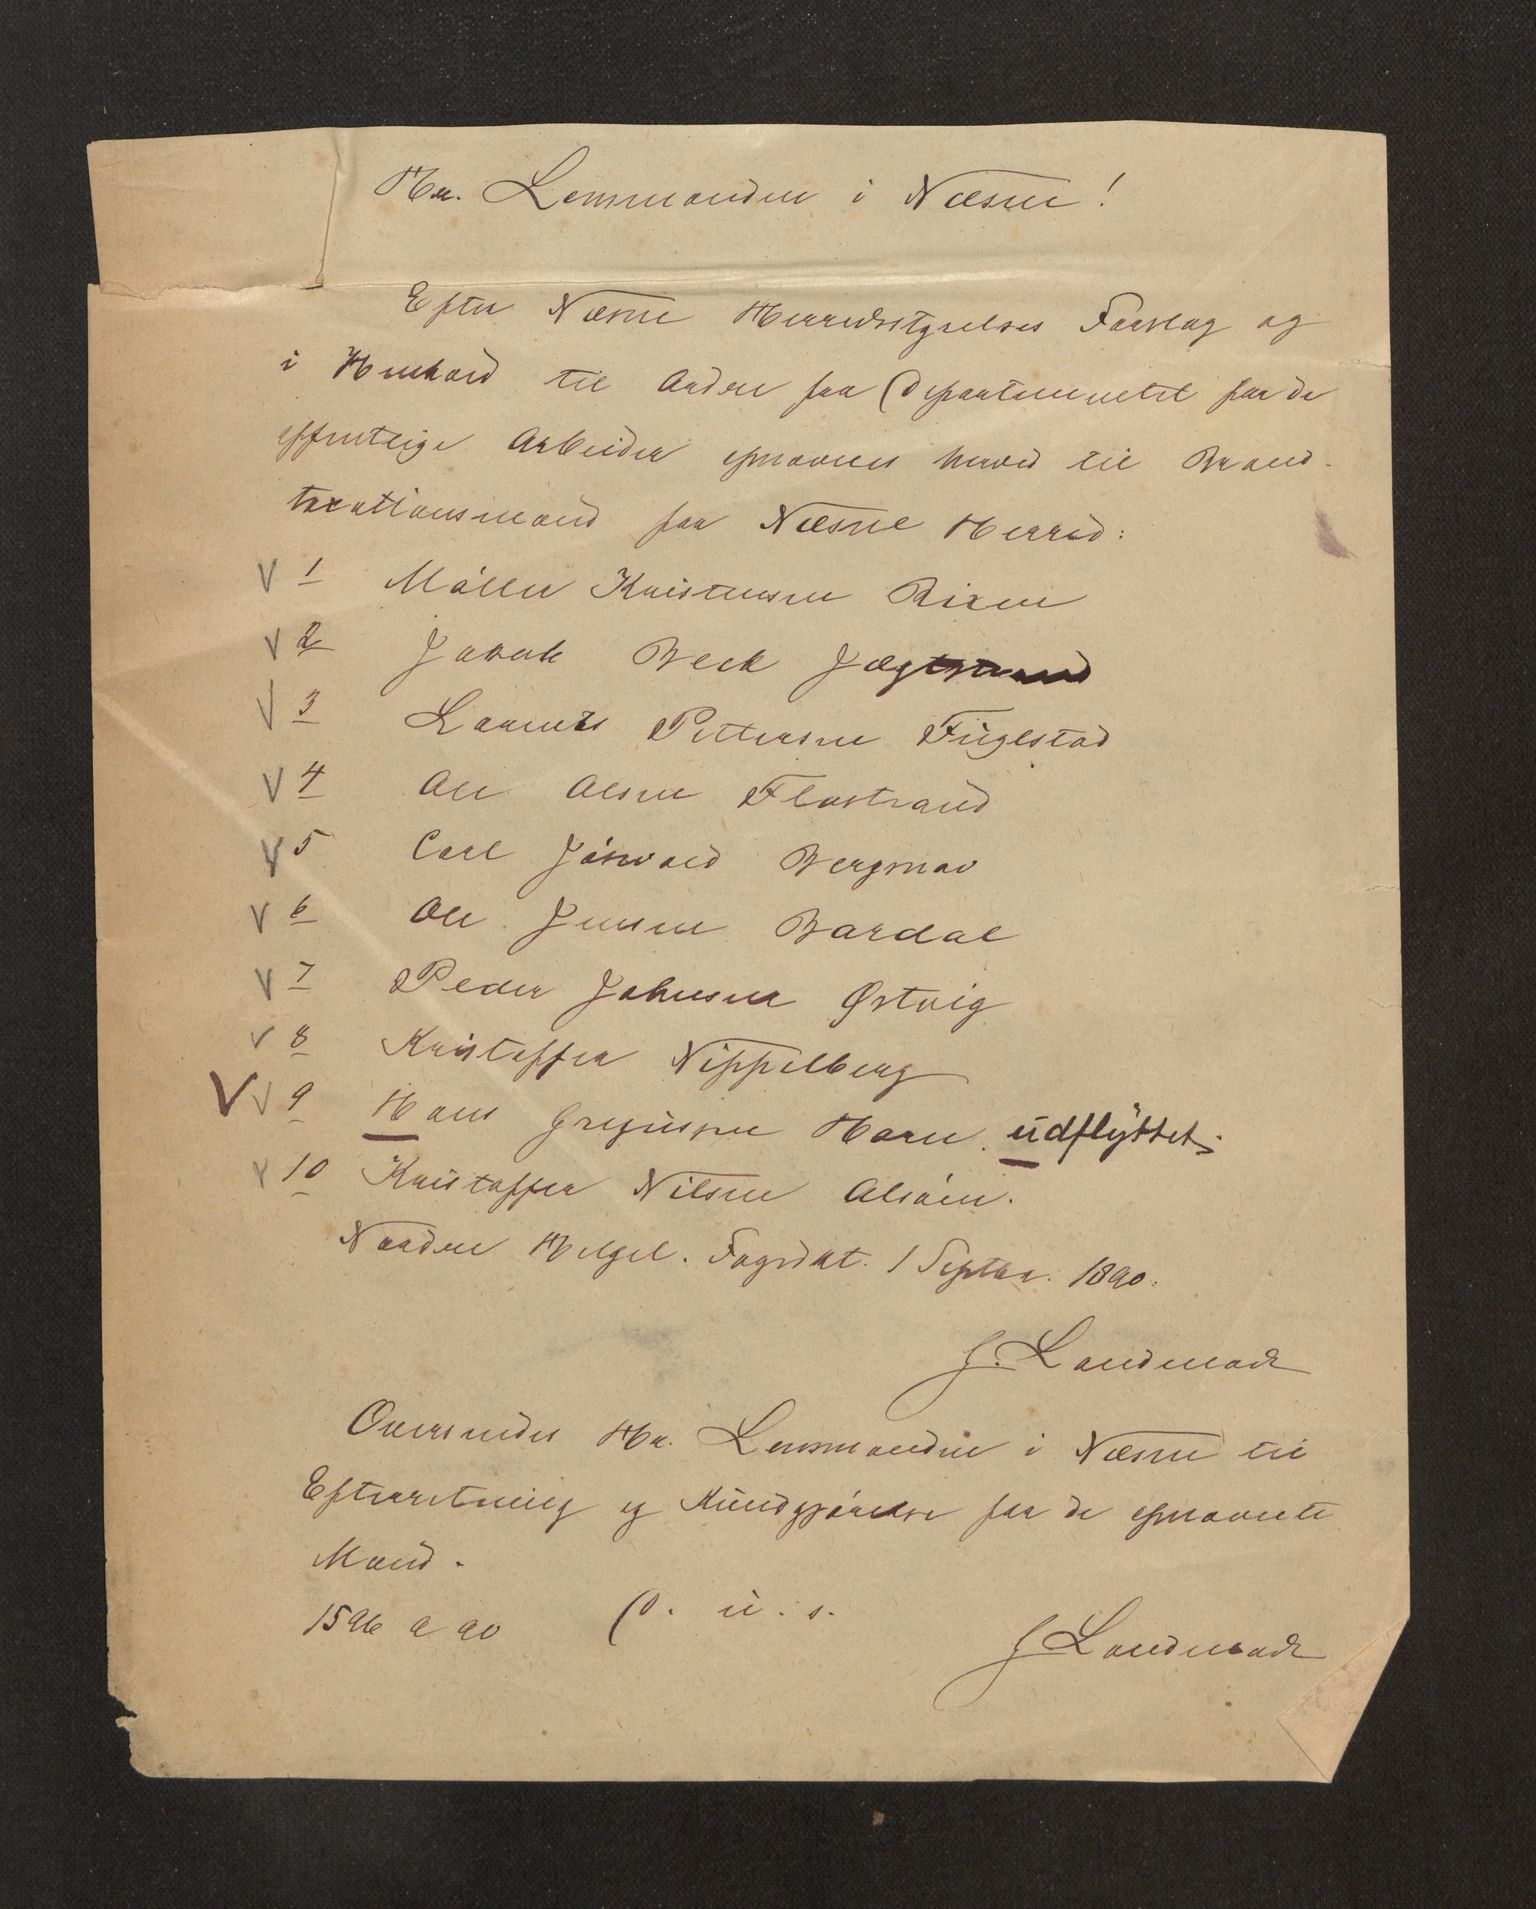 Hr. Lensmanden i Næsne!
Efter Næsne Herredsstyrelses Forslag og
i Henhold til Ordre fra Departementet for de
offentlige Arbeider opnævnes herved til Brand-
taxationsmænd for Næsne Herred:
V 1 Möller Kristensen Rixen
V 2 Jakob Beck Jægtstrand
V 3 Laurits Pettersen Fuglstad
V 4 Ole Olsen Flostrand
V 5 Carl Jörvold Bergmo
V 6 Ole Jensen Bardal
V 7 Peder Johnsen Østvig
V 8 Kristoffer Nippelberg
V V 9 Hans Gregusen Horn. udflyttet.
V 10 Kristoffer Nilsen Alsöen.
Nordre Helgel. Fogedkt. 1 Septbr. 1890.
J. Landmark
Oversendes Hr. Lensmanden i Næsne til
Efterretning og Kundgjörelse for de opnævnte
Mænd.
1596 a 90 D. u. s.
J Landmark